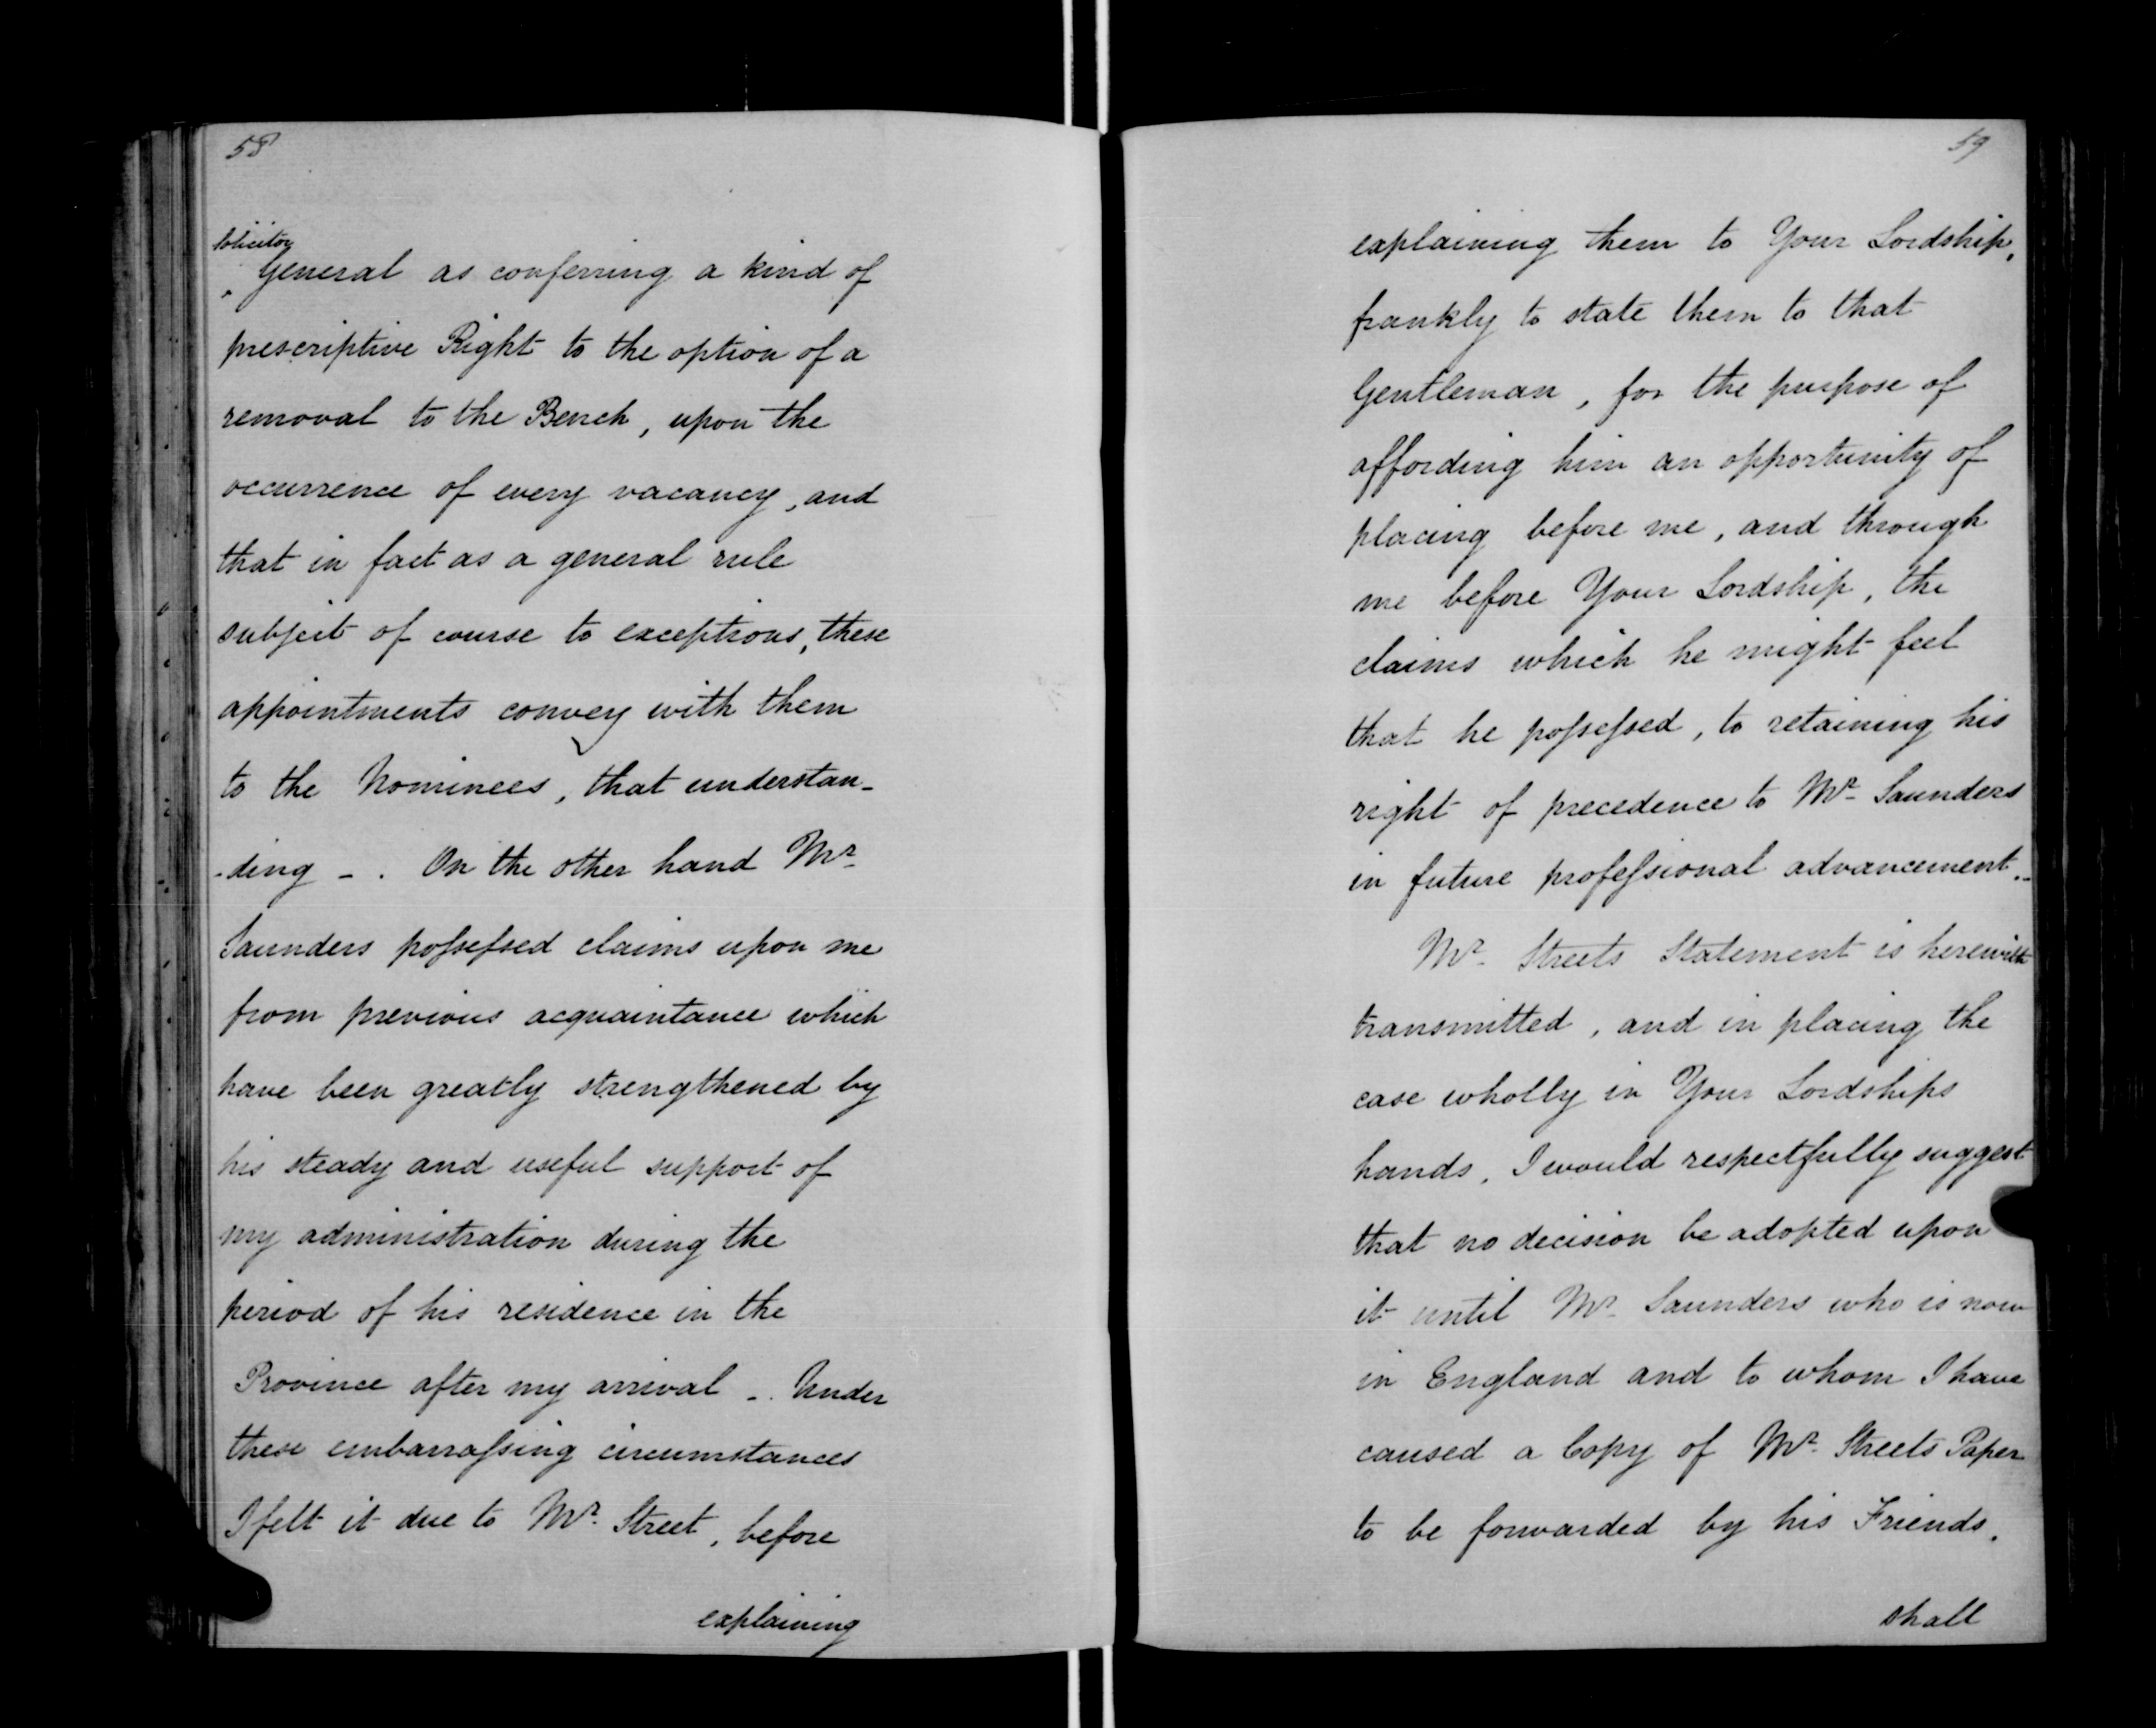 58
Solicitor
General as conferring a kind of
prescriptive Right to the option of a
removal to the Bench, upon the
occurrence of every vacancy, and
that in fact as a general rule
subject of course to exceptions, these
appointments convey with them
to the Nominees, that understan-
-ding - . On the other hand Mr
Saunders possessed claims upon me
from previous acquaintance which
have been greatly strengthened by
his steady and useful support of
my administration during the
period of his residence in the
Province after my arrival - . Under
these embarrassing circumstances
I felt it due to Mr. Street, before
explaining
59
explaining them to Your Lordship,
frankly to state them to that
Gentleman, for the purpose of
affording him an opportunity of
placing before me, and through
me before Your Lordship, the
claims which he might feel
that he possessed, to retaining his
right of precedence to Mr. Saunders
in future professional advancement.-
Mr. Streets Statement is herewith
transmitted, and in placing the
case wholly in Your Lordships
hands, I would respectfully suggest
that no decision be adopted upon
it until Mr. Saunders who is now
in England and to whom I have
caused a Copy of Mr. Streets Paper
to be forwarded by his Friends,
shall